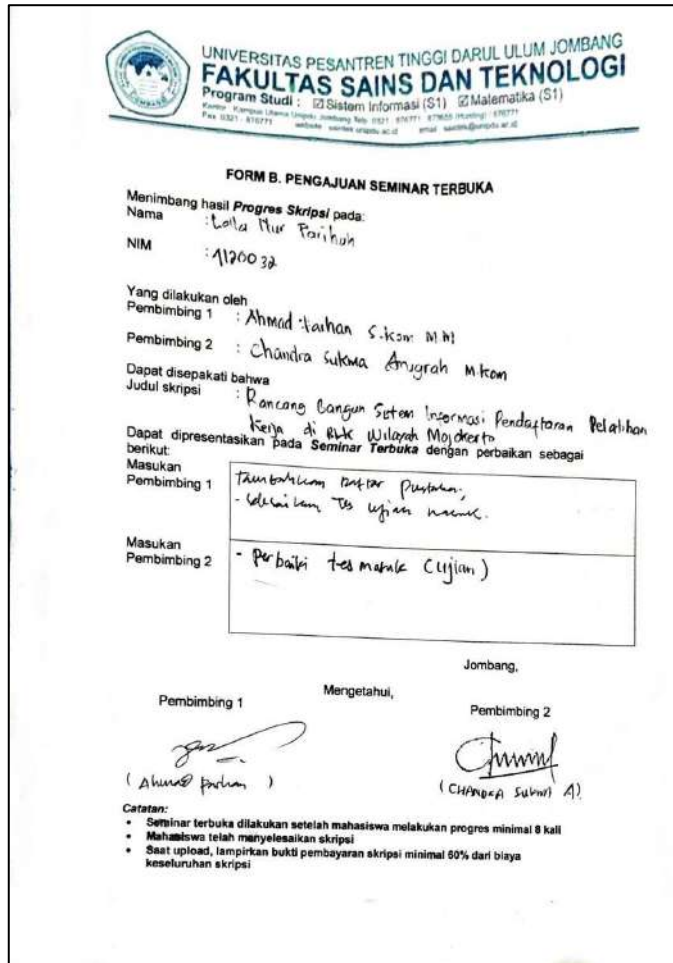 UNIVERSITAS PESANTREN TINGGI DARUL ULUM JOMBANG
FAKULTAS SAINS DAN TEKNOLOGI
Program Studi : ☑ Sistem Informasi (S1) ☑ Matematika (S1)
Kantor : Kampus Utama Unipdu Jombang Telp. 0321 - 876771
Fax. 0321 - 876771 website : saintek.unipdu.ac.id email : saintek@unipdu.ac.id
FORM B. PENGAJUAN SEMINAR TERBUKA
Menimbang hasil Progres Skripsi pada:
Nama : Laila Nur Farihah
NIM : 4120032
Yang dilakukan oleh
Pembimbing 1 : Ahmad Farhan S.Kom M.M
Pembimbing 2 : Chandra Sukma Anugrah M.Kom
Dapat disepakati bahwa
Judul skripsi : Rancang Bangun Sistem Informasi Pendaftaran Pelatihan
Kerja di BLK Wilayah Mojokerto
Dapat dipresentasikan pada Seminar Terbuka dengan perbaikan sebagai
berikut:
Masukan
Pembimbing 1
Tambahkan Daftar Pustaka,
- Selesaikan Tes ujian masuk.
Masukan
Pembimbing 2
- Perbaiki tes masuk (ujian)
Jombang,
Mengetahui,
Pembimbing 1 Pembimbing 2
( Ahmad Farhan ) ( CHANDRA Sukma A)
Catatan:
• Seminar terbuka dilakukan setelah mahasiswa melakukan progres minimal 8 kali
• Mahasiswa telah menyelesaikan skripsi
• Saat upload, lampirkan bukti pembayaran skripsi minimal 60% dari biaya
keseluruhan skripsi